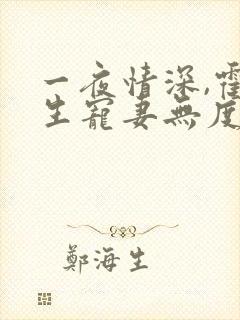 一夜情深,霍
生寵妻無度
鄭海生